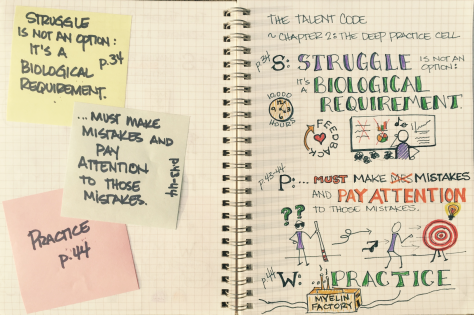 STRUGGLE
IS NOT AN OPTION:
IT'S A
BIOLOGICAL
REQUIREMENT.
p.34
...MUST MAKE
MISTAKES AND
PAY
ATTENTION
TO THOSE
MISTAKES.
p.43-44
PRACTICE
p.44
THE TALENT CODE
~ CHAPTER 2: THE DEEP PRACTICE CELL
p.34
S: STRUGGLE IS NOT AN
OPTION:
IT'S A BIOLOGICAL
REQUIREMENT.
10,000
HOURS
FEEDBACK
p.43-44
P: ... MUST MAKE MISTAKES
AND PAY ATTENTION
TO THOSE MISTAKES.
??
p.44
W: ... PRACTICE
MYELIN
FACTORY